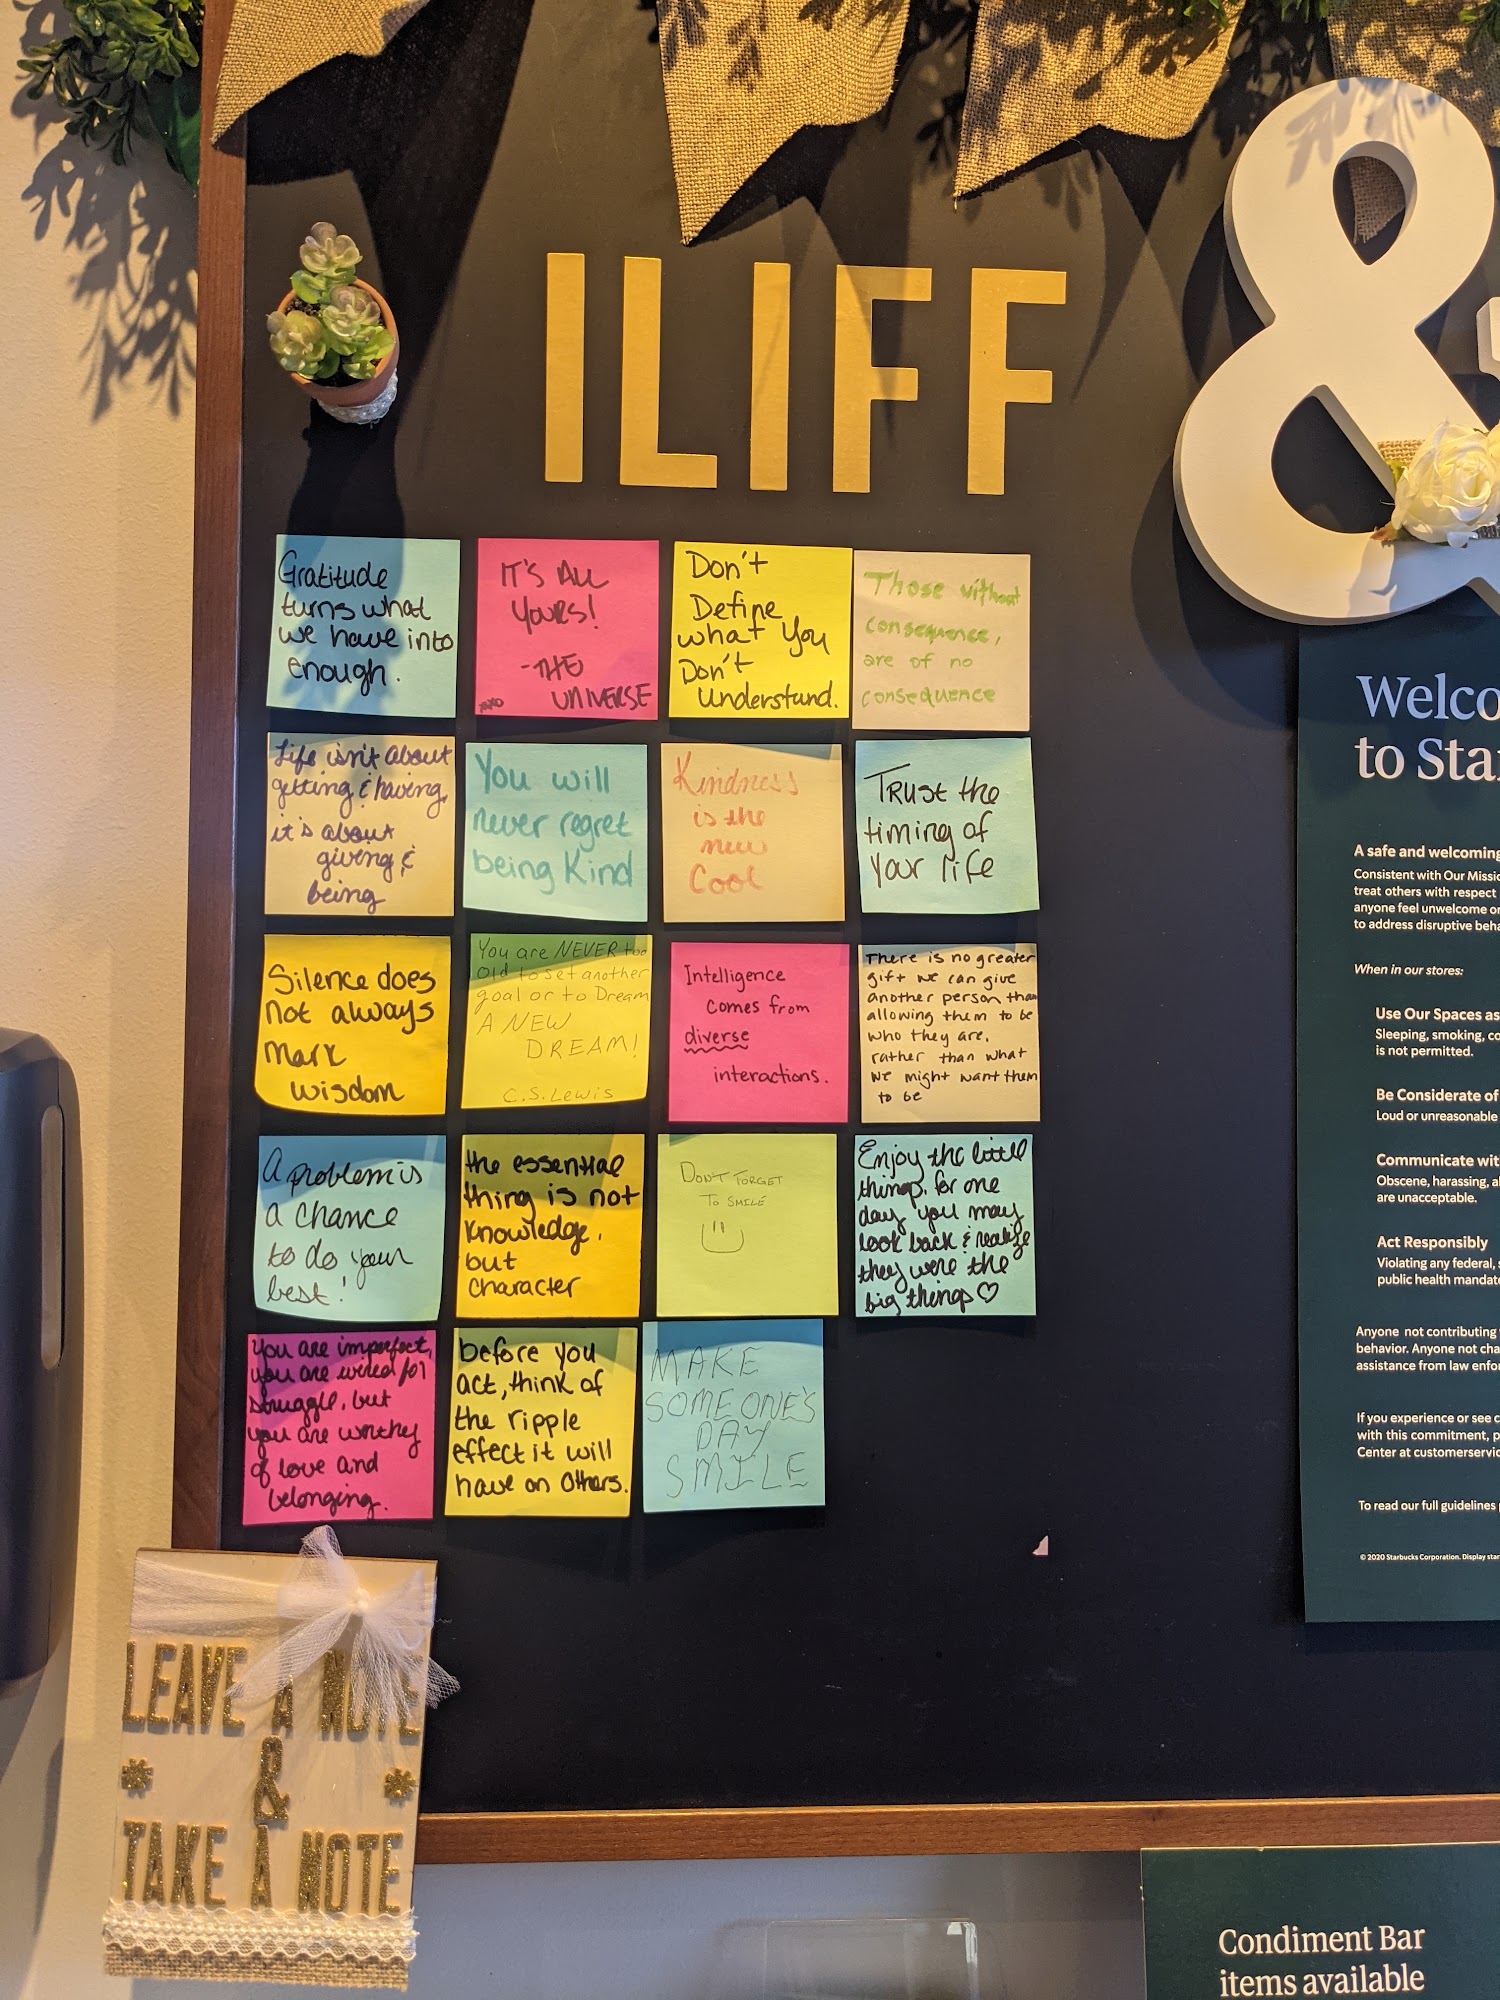 ILIFF
&
Gratitude
turns what
we have into
enough.
IT'S ALL
YOURS!
-THE
UNIVERSE
xoxo
Don't
Define
what You
Don't
Understand.
Those without
consequence,
are of no
consequence
Life isn't about
getting & having,
it's about
giving &
being
You will
never regret
being Kind
Kindness
is the
new
Cool
Trust the
timing of
Your life
Silence does
not always
mark
wisdom
You are NEVER too
old to set another
goal or to Dream
A NEW
DREAM!
C.S. Lewis
Intelligence
comes from
diverse
interactions.
There is no greater
gift we can give
another person than
allowing them to be
who they are,
rather than what
we might want them
to be
A problem is
a chance
to do your
best!
the essential
thing is not
knowledge,
but
character
DON'T FORGET
TO SMILE
Enjoy the little
things, for one
day you may
look back & realize
they were the
big things ♡
You are imperfect,
you are wired for
struggle, but
you are worthy
of love and
belonging.
before you
act, think of
the ripple
effect it will
have on others.
MAKE
SOMEONE'S
DAY
SMILE
LEAVE A NOTE
&
TAKE A NOTE
Welco
to Sta
A safe and welcoming
Consistent with Our Missio
treat others with respect
anyone feel unwelcome or
to address disruptive beha
When in our stores:
Use Our Spaces as
Sleeping, smoking, co
is not permitted.
Be Considerate of
Loud or unreasonable
Communicate wit
Obscene, harassing, a
are unacceptable.
Act Responsibly
Violating any federal, s
public health mandat
Anyone not contributing
behavior. Anyone not cha
assistance from law enfor
If you experience or see c
with this commitment, p
Center at customerservic
To read our full guidelines
© 2020 Starbucks Corporation. Display
Condiment Bar
items available